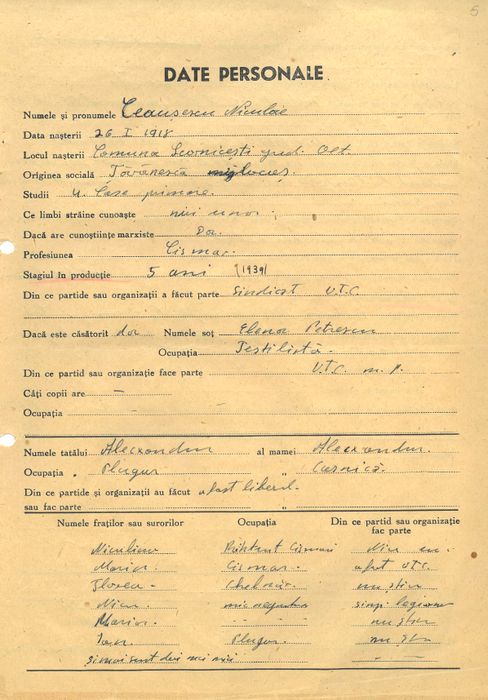 5
DATE PERSONALE
Numele și pronumele Ceaușescu Niculae
Data nașterii 26 I 1918
Locul nașterii Comuna Scornicești jud. Olt
Originea socială Țărănească mijlocaș
Studii 4 clase primare
Ce limbi străine cunoaște nici una.
Dacă are cunoștiințe marxiste Da
Profesiunea Cismar.
Stagiul în producție 5 ani (1939)
Din ce partide sau organizații a făcut parte Sindicat U.T.C.
Dacă este căsătorit da Numele soț Elena Petrescu
Ocupația Textilistă
Din ce partid sau organizație face parte U.T.C. m. p.
Câți copii are —
Ocupația
Numele tatălui Alecxandru al mamei Alecxandra.
Ocupația „ Plugar „ Casnică.
Din ce partide și organizații au făcut a fost liberal.
sau fac parte
Numele fraților sau surorilor Ocupația Din ce partid sau organizație
fac parte
Niculina Cismar
Maria. Cismar. a fost UTC
Florea - nu știu
Nicu. mic simp. legionar
Maria. - - nu știu
Ion Plugar. nu știu
și mai sunt doi mai mici —